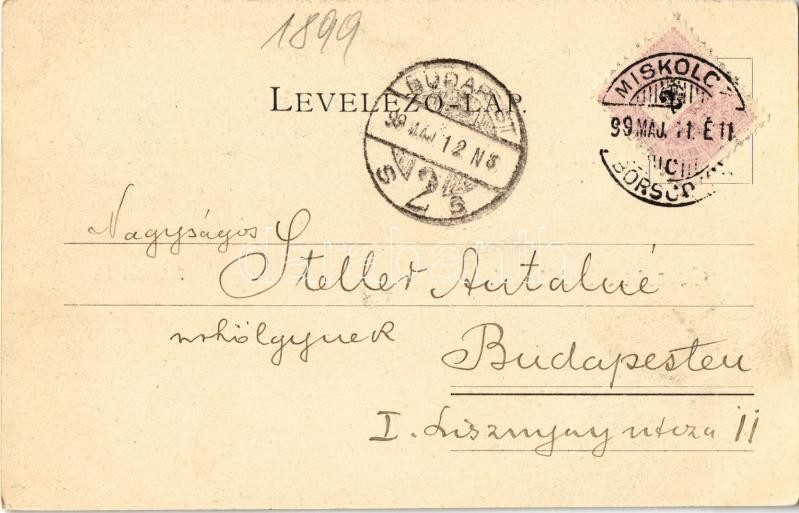 1899
LEVELEZŐ-LAP.
BUDAPEST
99 MÁJ. 12 N 8.
2
S S
MISKOLCZ
99 MÁJ. 11. É 11
C
BORSOD
Nagyságos
Steller Antalné
úrhölgynek
Budapesten
I. Lisznyay utcza 11
darabanth